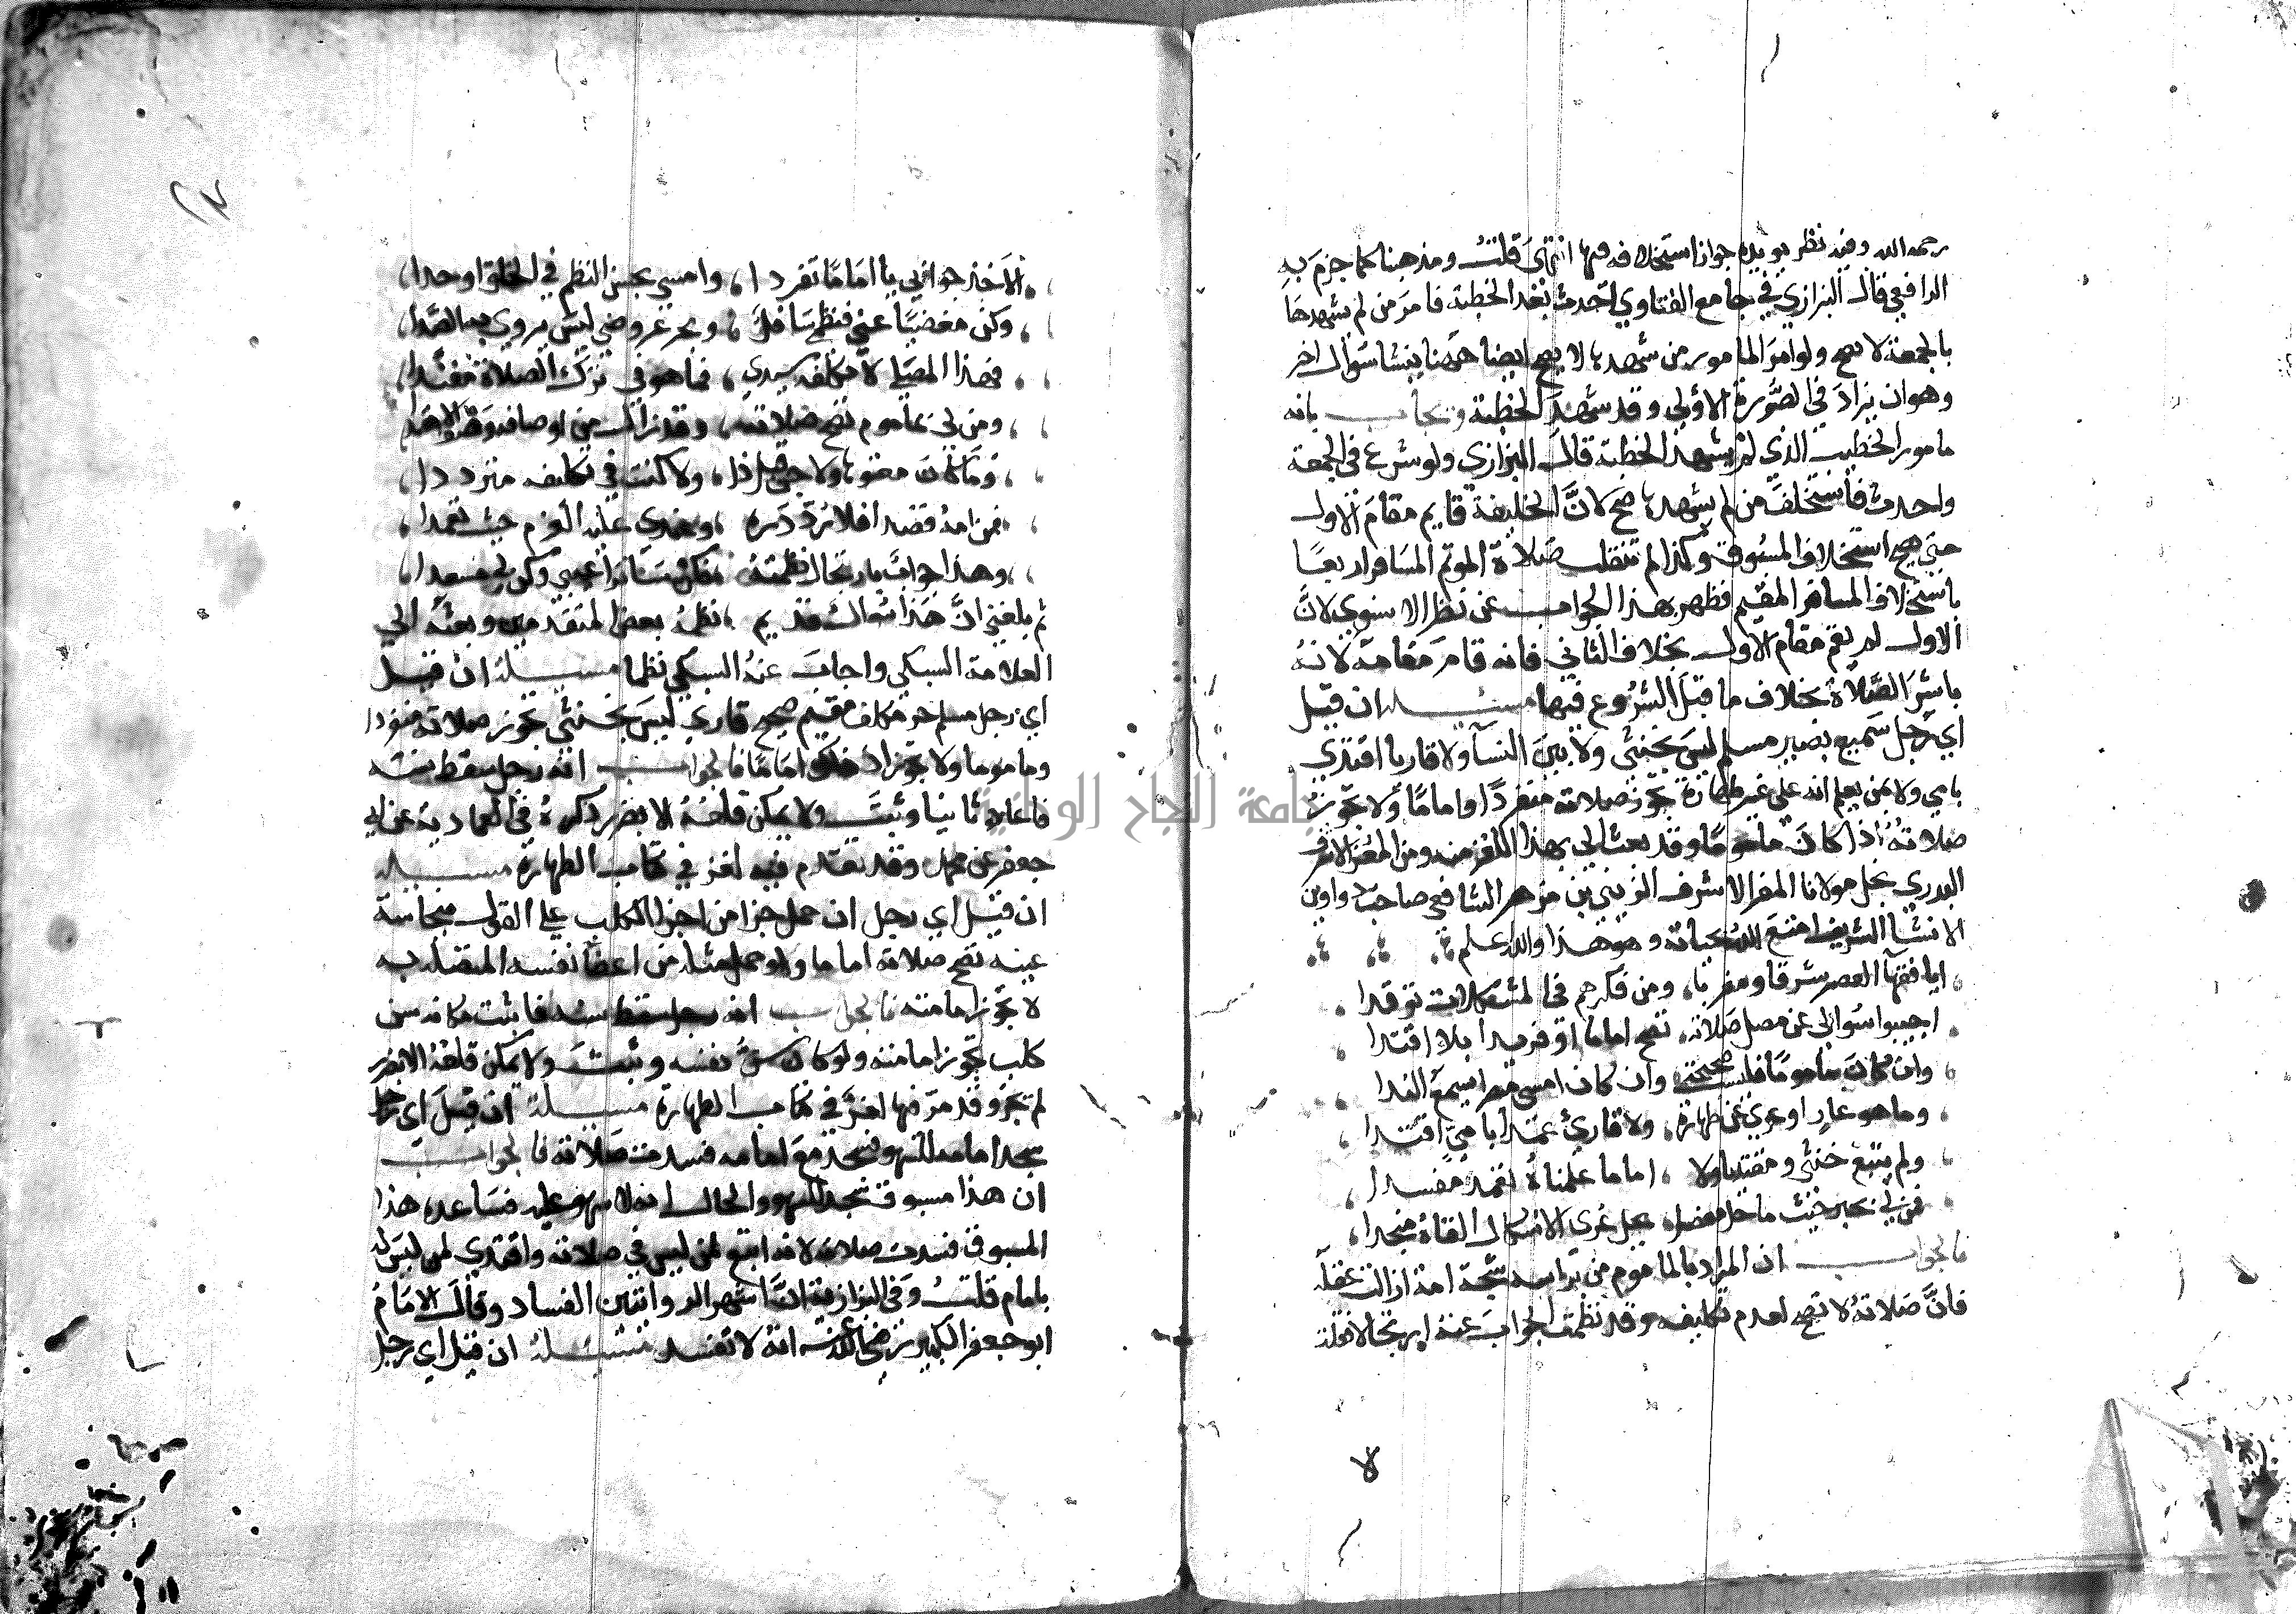 رحمه الله وفيه نظر يويده جواز استخلافه فيها انتهى قلت ومذهبنا كما جزم به
الرافعي قال البزازي في جامع الفتاوي احدث بعد الخطبة فامر من لم يشهدها
بالجمعة لا يصح ولو امر المامور من شهدها لا يصح ايضا وهنا ينشا سوال اخر
وهو ان يزاد في الصورة الاولى وقد شهد الخطبة ويجاب بانه
مامور الخطيب الذي لم يشهد الخطبة قال البزازي ولو شرع في الجمعة
واحدث فاستخلف من لم يشهدها صح لان الخليفة قايم مقام الاول
حتى يصح استخلاف المسبوق وكذا لم تنقلب صلاة الموتم المسافر اربعا
باستخلاف المسافر المقيم فظهر بهذا الجواب عن نظر الاسنوي لان
الاول لم يقم مقام الاول بخلاف الثاني فانه قام مقامه لانه
باشر الصلاة بخلاف ما قبل الشروع فيها مسيلة ان قيل
اي رجل سميع بصير مسلم ليس بخنثى ولا بين النسا ولا قاريا اقتدى
بامي ولا بمن يعلم انه على غير طهارة تجوز صلاته منفردا واماما ولا تجوز
صلاته اذا كان ماموما وقد بعث الي بهذا اللغز منه ومن المقر الاشرف
البدري نجل مولانا المقر الاشرف الزيني بن مزهر الشافعي صاحب دواوين
الانشا الشريف امتع الله بحياته وهو هذا والله اعلم
ايا فقها العصر شرقا ومغربا، ومن فكرهم في المشكلات توقدا
اجيبوا سوالي عن مصل صلاته، تصح اماما او فريدا بلا اقتدا
وان كان ماموما فليست صحيحة وان كان امسى مبصرا يسمع الندا
وما هو عار او عري عن طهارة، ولا قارئ عمدا بامي اقتدا
ولم يتبع خنثى ومقتديا ولا، اماما علمناه تعمد مفسدا
فمن لي بحبر حيث ما حل معضلا، يحل عرى الاشكال القاه منجدا
فالجواب ان المراد بالماموم من براسه شجة امة ازالت عقله
فان صلاته لا تصح لعدم تكليفه وقد نظمت الجواب عنه ارتجالا فقلت
الا خذ جوابي يا اماما تفردا، وامسى بحسن النظم في الخلق اوحدا
وكن مغضيا عني فنظمي سافل، وبحر عروضي ليس يروي به الصدا
فهذا المصلي لا مكلف سيدي، فما هو في ترك الصلاة مفندا
ومن لي بماموم تصح صلاته، وقد زال من اوصافه
وما كان معتوها ولا جن قبل ذا، ولا كنت في تكليفه مترددا
فمن امه قصدا فلا رد دره، وعندي عليه الوزم حيث تعمدا
وهذا جواب بارتجال نظمته فكن ساترا عيبي وكن لي مسعدا
ثم بلغني ان هذا سوال قديم، نظمه بعض المتقدمين وبعثه الى
العلامة السبكي واجاب عنه السبكي نظما مسيلة ان قيل
اي رجل مسلم حر مكلف مقيم صحيح قاري ليس بخنثى تجوز صلاته منفردا
وماموما ولا تجوز اذا كان اماما فالجواب انه رجل سقط سنه
فاعاده ثانيا وثبت ولا يمكن قلعه الا بضرر ذكره في العمادية عن ابي
جعفر عن محمد وقد تقدم فيه لغز في كتاب الطهارة مسيلة
ان قيل اي رجل ان حمل جزا من اجزا الكلب على القول بنجاسة
عينه تصح صلاته اماما ولو حمل مثله من اعضا نفسه المتصلة به
لا تجوز امامته فالجواب انه رجل سقط سنه فاثبت مكانه سن
كلب تجوز امامته ولو كان سن نفسه وثبت ولا يمكن قلعه الا بضرر
لم تجز وقد مر فيها لغز في كتاب الطهارة مسيلة ان قيل اي رجل
سجد امامه للسهو فسجد مع امامه فسدت صلاته فالجواب
ان هذا مسبوق سجد للسهو والحال انه لا سهو عليه فساعده هذا
المسبوق فسدت صلاته لانه اتبع لمن ليس في صلاته واقتدى لمن ليس له
بامام قلت وفي البزازية ان اشهر الروايتين الفساد وقال الامام
ابو جعفر الكبير رضي الله عنه انه لا تفسد مسيلة ان قيل اي رجل
جامعة النجاح الوطنية